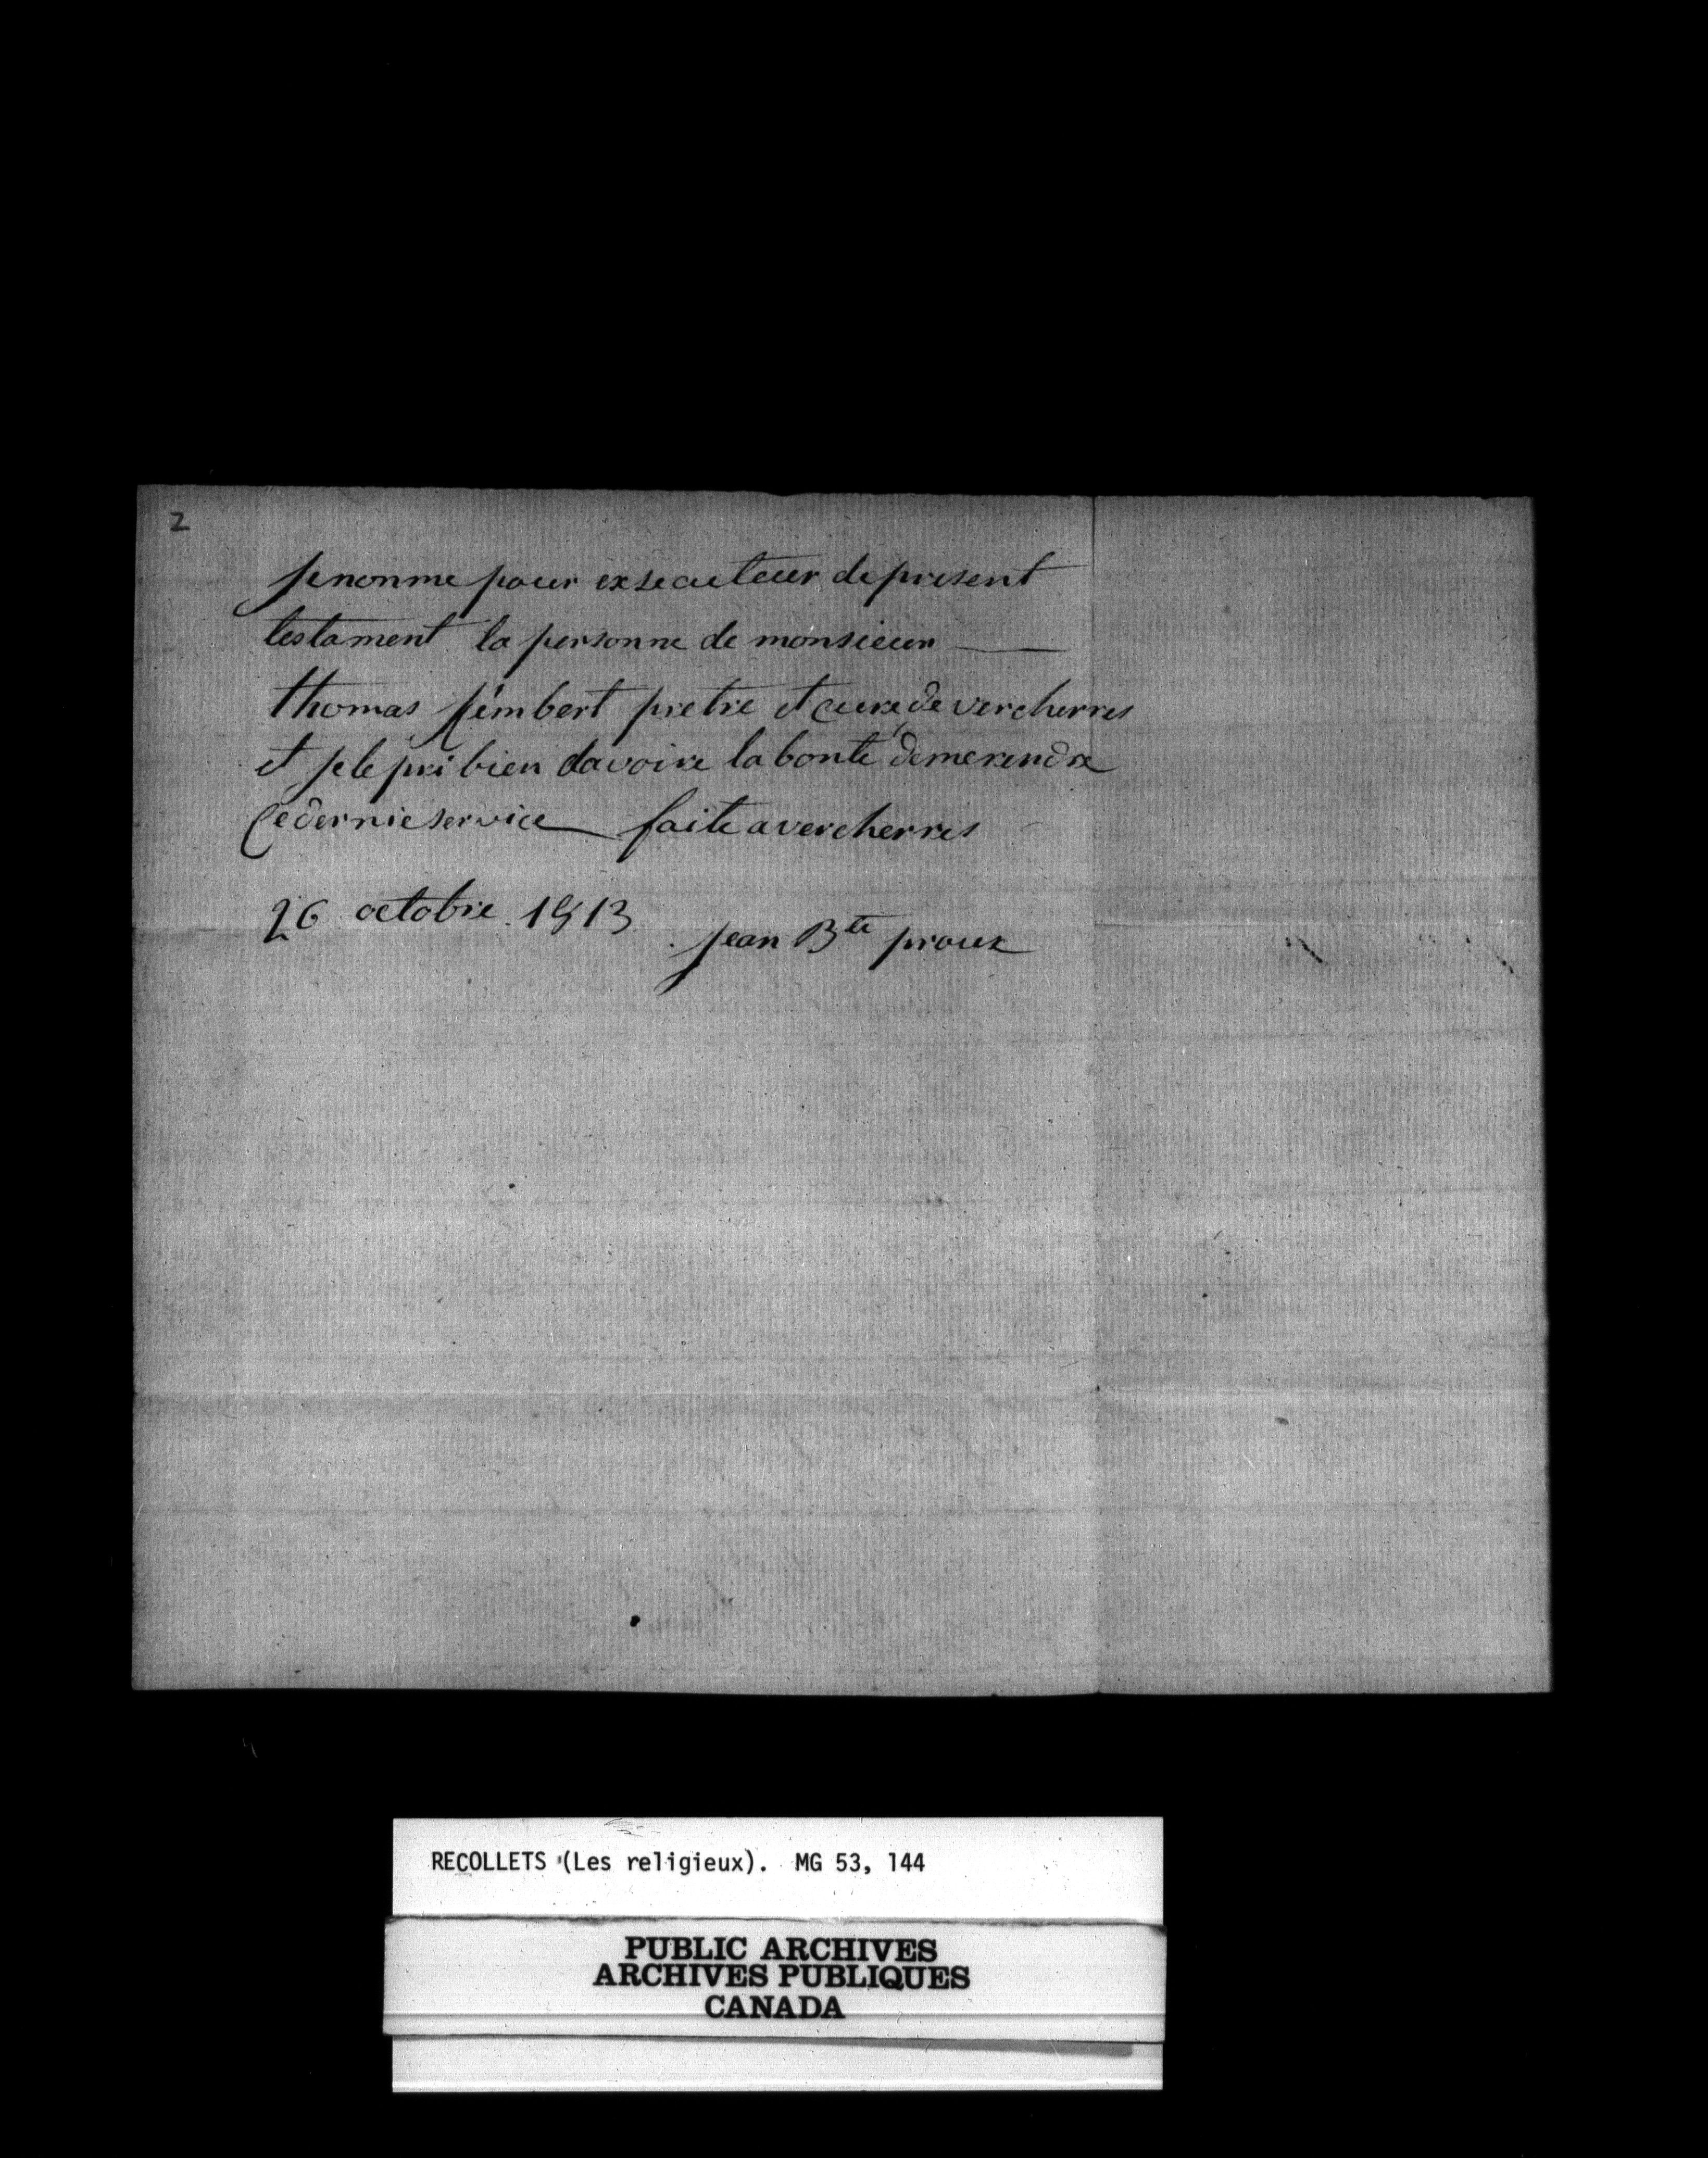 2
je nonme pour exsecuteur de present
testament la personne de monsieur
thomas kimbert pretre et cure de vercherres
et je le pri bien davoire la bonte de me rendre
Ce dernie service faite a vercherres
26 octobre 1813
jean Bte proux
RECOLLETS (Les religieux). MG 53, 144
PUBLIC ARCHIVES
ARCHIVES PUBLIQUES
CANADA